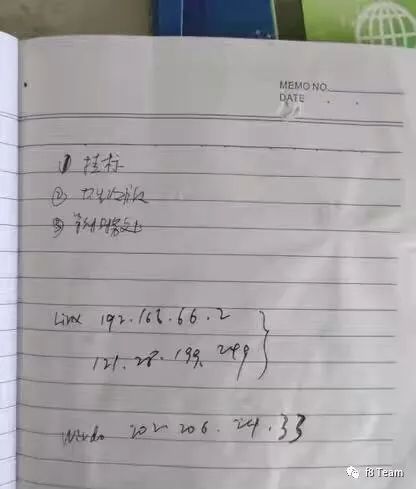 MEMO NO.
DATE
① 挂标
②
③
Linx 192.168.66.2
121.28.199.249
Windo 202 206.24.33
f8 Team